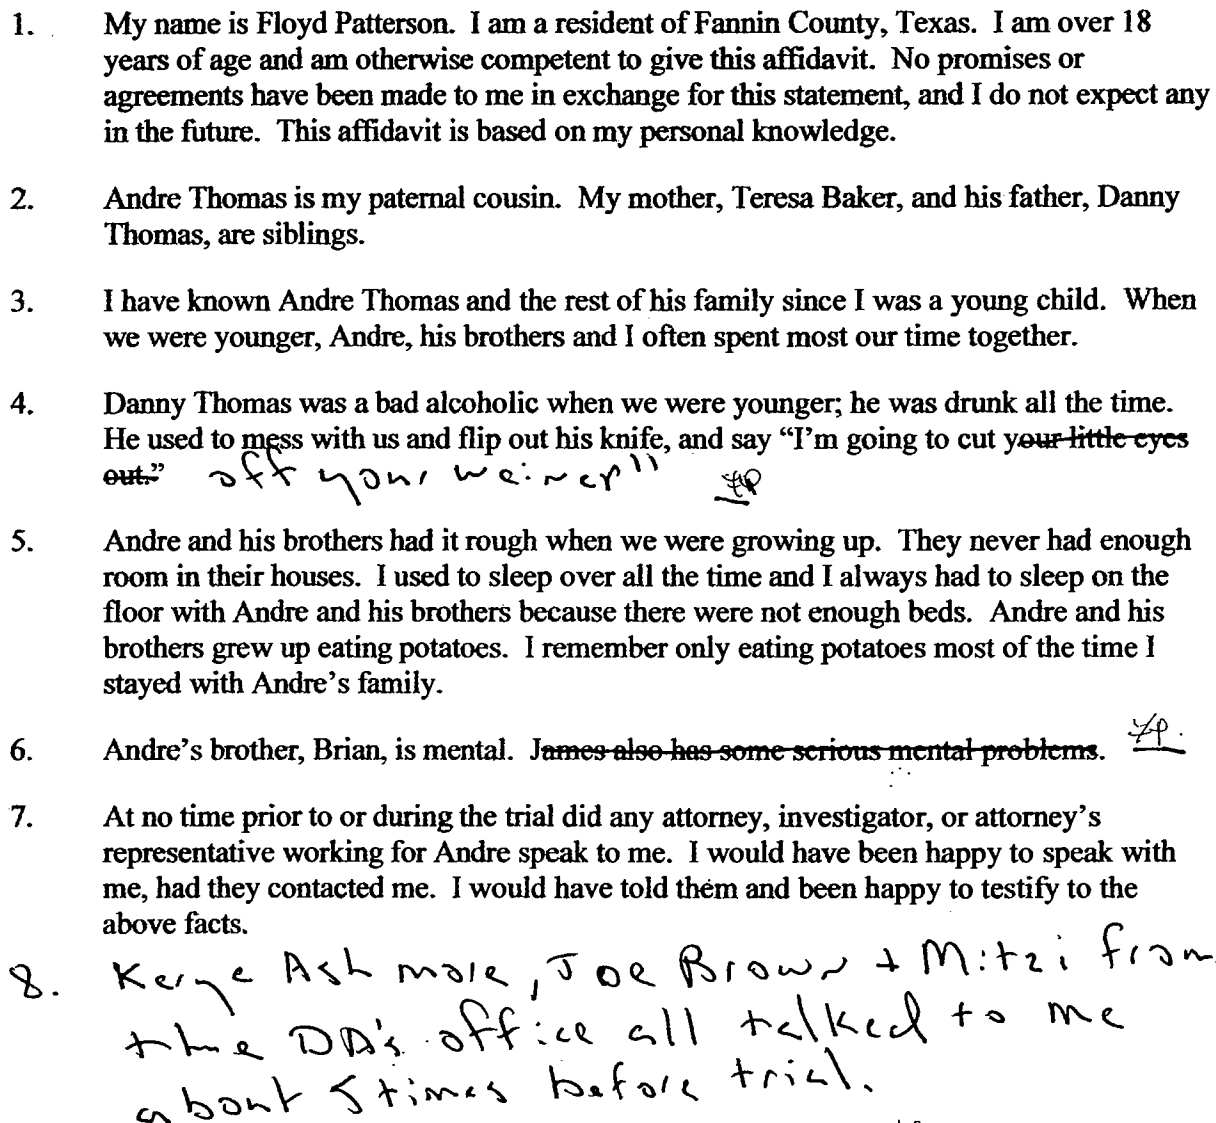 1. My name is Floyd Patterson. I am a resident of Fannin County, Texas. I am over 18
years of age and am otherwise competent to give this affidavit. No promises or
agreements have been made to me in exchange for this statement, and I do not expect any
in the future. This affidavit is based on my personal knowledge.
2. Andre Thomas is my paternal cousin. My mother, Teresa Baker, and his father, Danny
Thomas, are siblings.
3. I have known Andre Thomas and the rest of his family since I was a young child. When
we were younger, Andre, his brothers and I often spent most our time together.
4. Danny Thomas was a bad alcoholic when we were younger; he was drunk all the time.
He used to mess with us and flip out his knife, and say “I’m going to cut your little eyes
out.” off your weiner" FP
5. Andre and his brothers had it rough when we were growing up. They never had enough
room in their houses. I used to sleep over all the time and I always had to sleep on the
floor with Andre and his brothers because there were not enough beds. Andre and his
brothers grew up eating potatoes. I remember only eating potatoes most of the time I
stayed with Andre’s family.
6. Andre’s brother, Brian, is mental. James also has some serious mental problems. FP.
7. At no time prior to or during the trial did any attorney, investigator, or attorney’s
representative working for Andre speak to me. I would have been happy to speak with
me, had they contacted me. I would have told them and been happy to testify to the
above facts.
8. Kerye Ashmore, Joe Brown + Mitzi from
the DA's office all talked to me
about 5 times before trial.